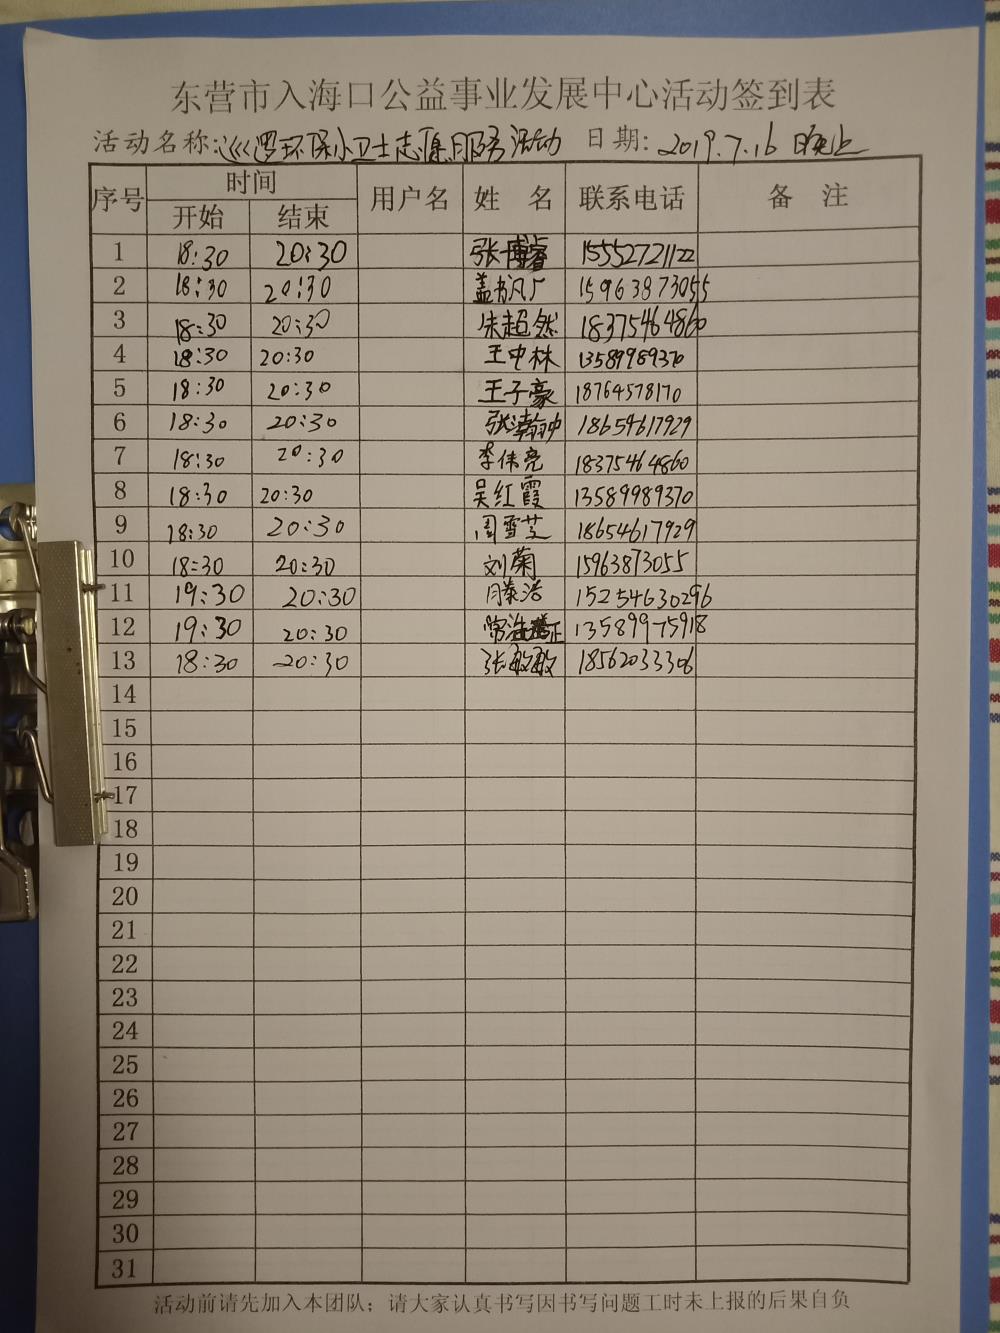 东营市入海口公益事业发展中心活动签到表
活动名称:巡逻环保小卫士志愿服务活动 日期:2019.7.16 晚上
序号 时间 用户名 姓 名 联系电话 备 注
开始 结束
1 18:30 20:30 张博睿 15552721122
2 18:30 20:30 15963873055
3 18:30 20:30 朱超然 18375464860
4 18:30 20:30 王中林 13589989370
5 18:30 20:30 王子豪 18764578170
6 18:30 20:30 张瀚翀 18654617929
7 18:30 20:30 李伟亮 18375464860
8 18:30 20:30 吴红霞 13589989370
9 18:30 20:30 周雪芝 18654617929
10 18:30 20:30 刘菊 15963873055
11 19:30 20:30 滕浩 15254630296
12 19:30 20:30 13589975918
13 18:30 20:30 张敏敏 18562033306
14
15
16
17
18
19
20
21
22
23
24
25
26
27
28
29
30
31
活动前请先加入本团队；请大家认真书写因书写问题工时未上报的后果自负